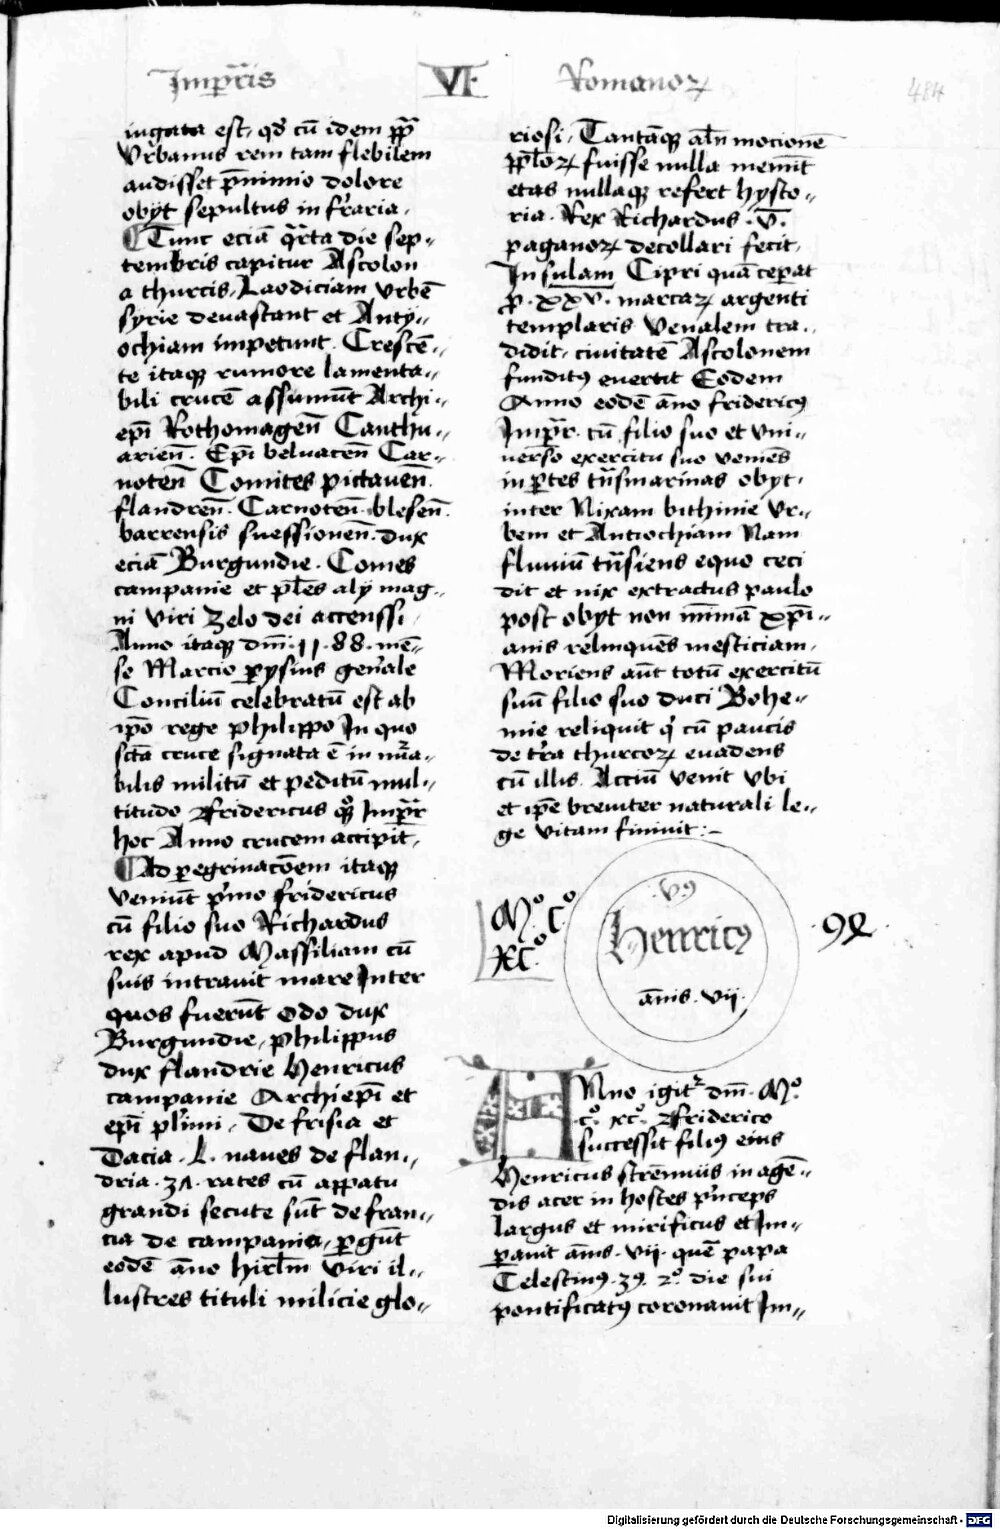 Imp̄ris VI Romanoꝝ 484
iugata est, qd̄ cū idem pp̄a
Vrbanus rem tam flebilem
audisset p̄nimio dolore
obijt sepultus in fr̄aria.
Tunc eciā q̄rta die sep„
tembris capitur Ascolon
a thurcis, Laodiciam vrbē
syrie deuastant et Anty„
ochiam impetunt. Crescē„
te itaqꝫ rumore lamenta„
bili crucē assumūt Archi„
ep̄i Rothomageñ Canthu„
arieñ. Ep̄i beluaceñ Car„
noteñ Comites pictaueñ.
flandreñ. Carnoteñ. bleseñ.
barrensis suessioneñ. dux
eciā Burgundie. Comes
campanie et pl̄es alij mag„
ni viri zelo dei accenssi,
Anno itaqꝫ dm̄. 11.88. mē„
se Marcio parysius gen̄ale
Conciliū celebratū est ab
ip̄o rege philippo In quo
sc̄ta cruce signata ē in nu̅a„
bilis militū et peditū mul„
titudo Fridericus qꝫ Imp̄r
hoc Anno crucem accipit,
Ad peregrinac̄oem itaqꝫ
veniūt p̄mo fridericus
cū filio suo Richardus
rex apud Massiliam cū
suis intrauit mare Inter
quos fuerūt Odo dux
Burgundie, philippus
dux flandrie Henricus
campanie Archiep̄i et
ep̄i pl̄imi, De frisia et
Dacia. L. naues de flan„
dria. 37. rates cū appatu
grandi secute sūt de fran„
cia de campania, p̄gūt
eodē āno hirl̄m viri il„
lustres tituli milicie glo„
riosi, Tantāqꝫ al̄n mocionē
ppl̄oꝝ fuisse nulla memīt
etas nullaqꝫ refert hysto„
ria. Rex Richardus. v̄.
paganoꝝ decollari fecit,
Insulam Cipri quā ceperat
p. xxv. marcaꝝ argenti
templaris venalem tra„
didit, ciuitatē Ascolonem
funditꝰ euertit Eodem
Anno eodē āno fridericꝰ
Imp̄r. cū filio suo et vni„
uerso exercitu suo veniēs
in p̄tes tn̄smarinas obyt,
inter Nixam bithinie vr„
bem et Antiochiam Nam
fluuiū tn̄siens equo ceci
dit et uix extractus paulo
post obyt non mīmā xp̄i„
anis relinquēs mesticiam,
Moriens aūt totū exercitū
suū filio suo duci Bohe„
mie reliquit q̄ cū paucis
de tr̄a thurcoꝝ euadens
cū illis. Acciū venit vbi
et ip̄e breuiter naturali le„
ge vitam finiuit :–
Mo. Co.
XCo.
.vꝰ
Henricꝰ
ānis. vij.
.92.
ANno igit᷑ dm̄. Mo.
.co. xco. Friderico
successit filiꝰ eius
Henricus strēnuus in agē„
dis acer in hostes p̄nceps
largus et mirificus et Im„
perauit ānis. vij. quē papa
Celestinꝰ. 3ꝰ. 2o. die sui
pontificatꝰ coronauit Im„
Digitalisierung gefördert durch die Deutsche Forschungsgemeinschaft - DFG